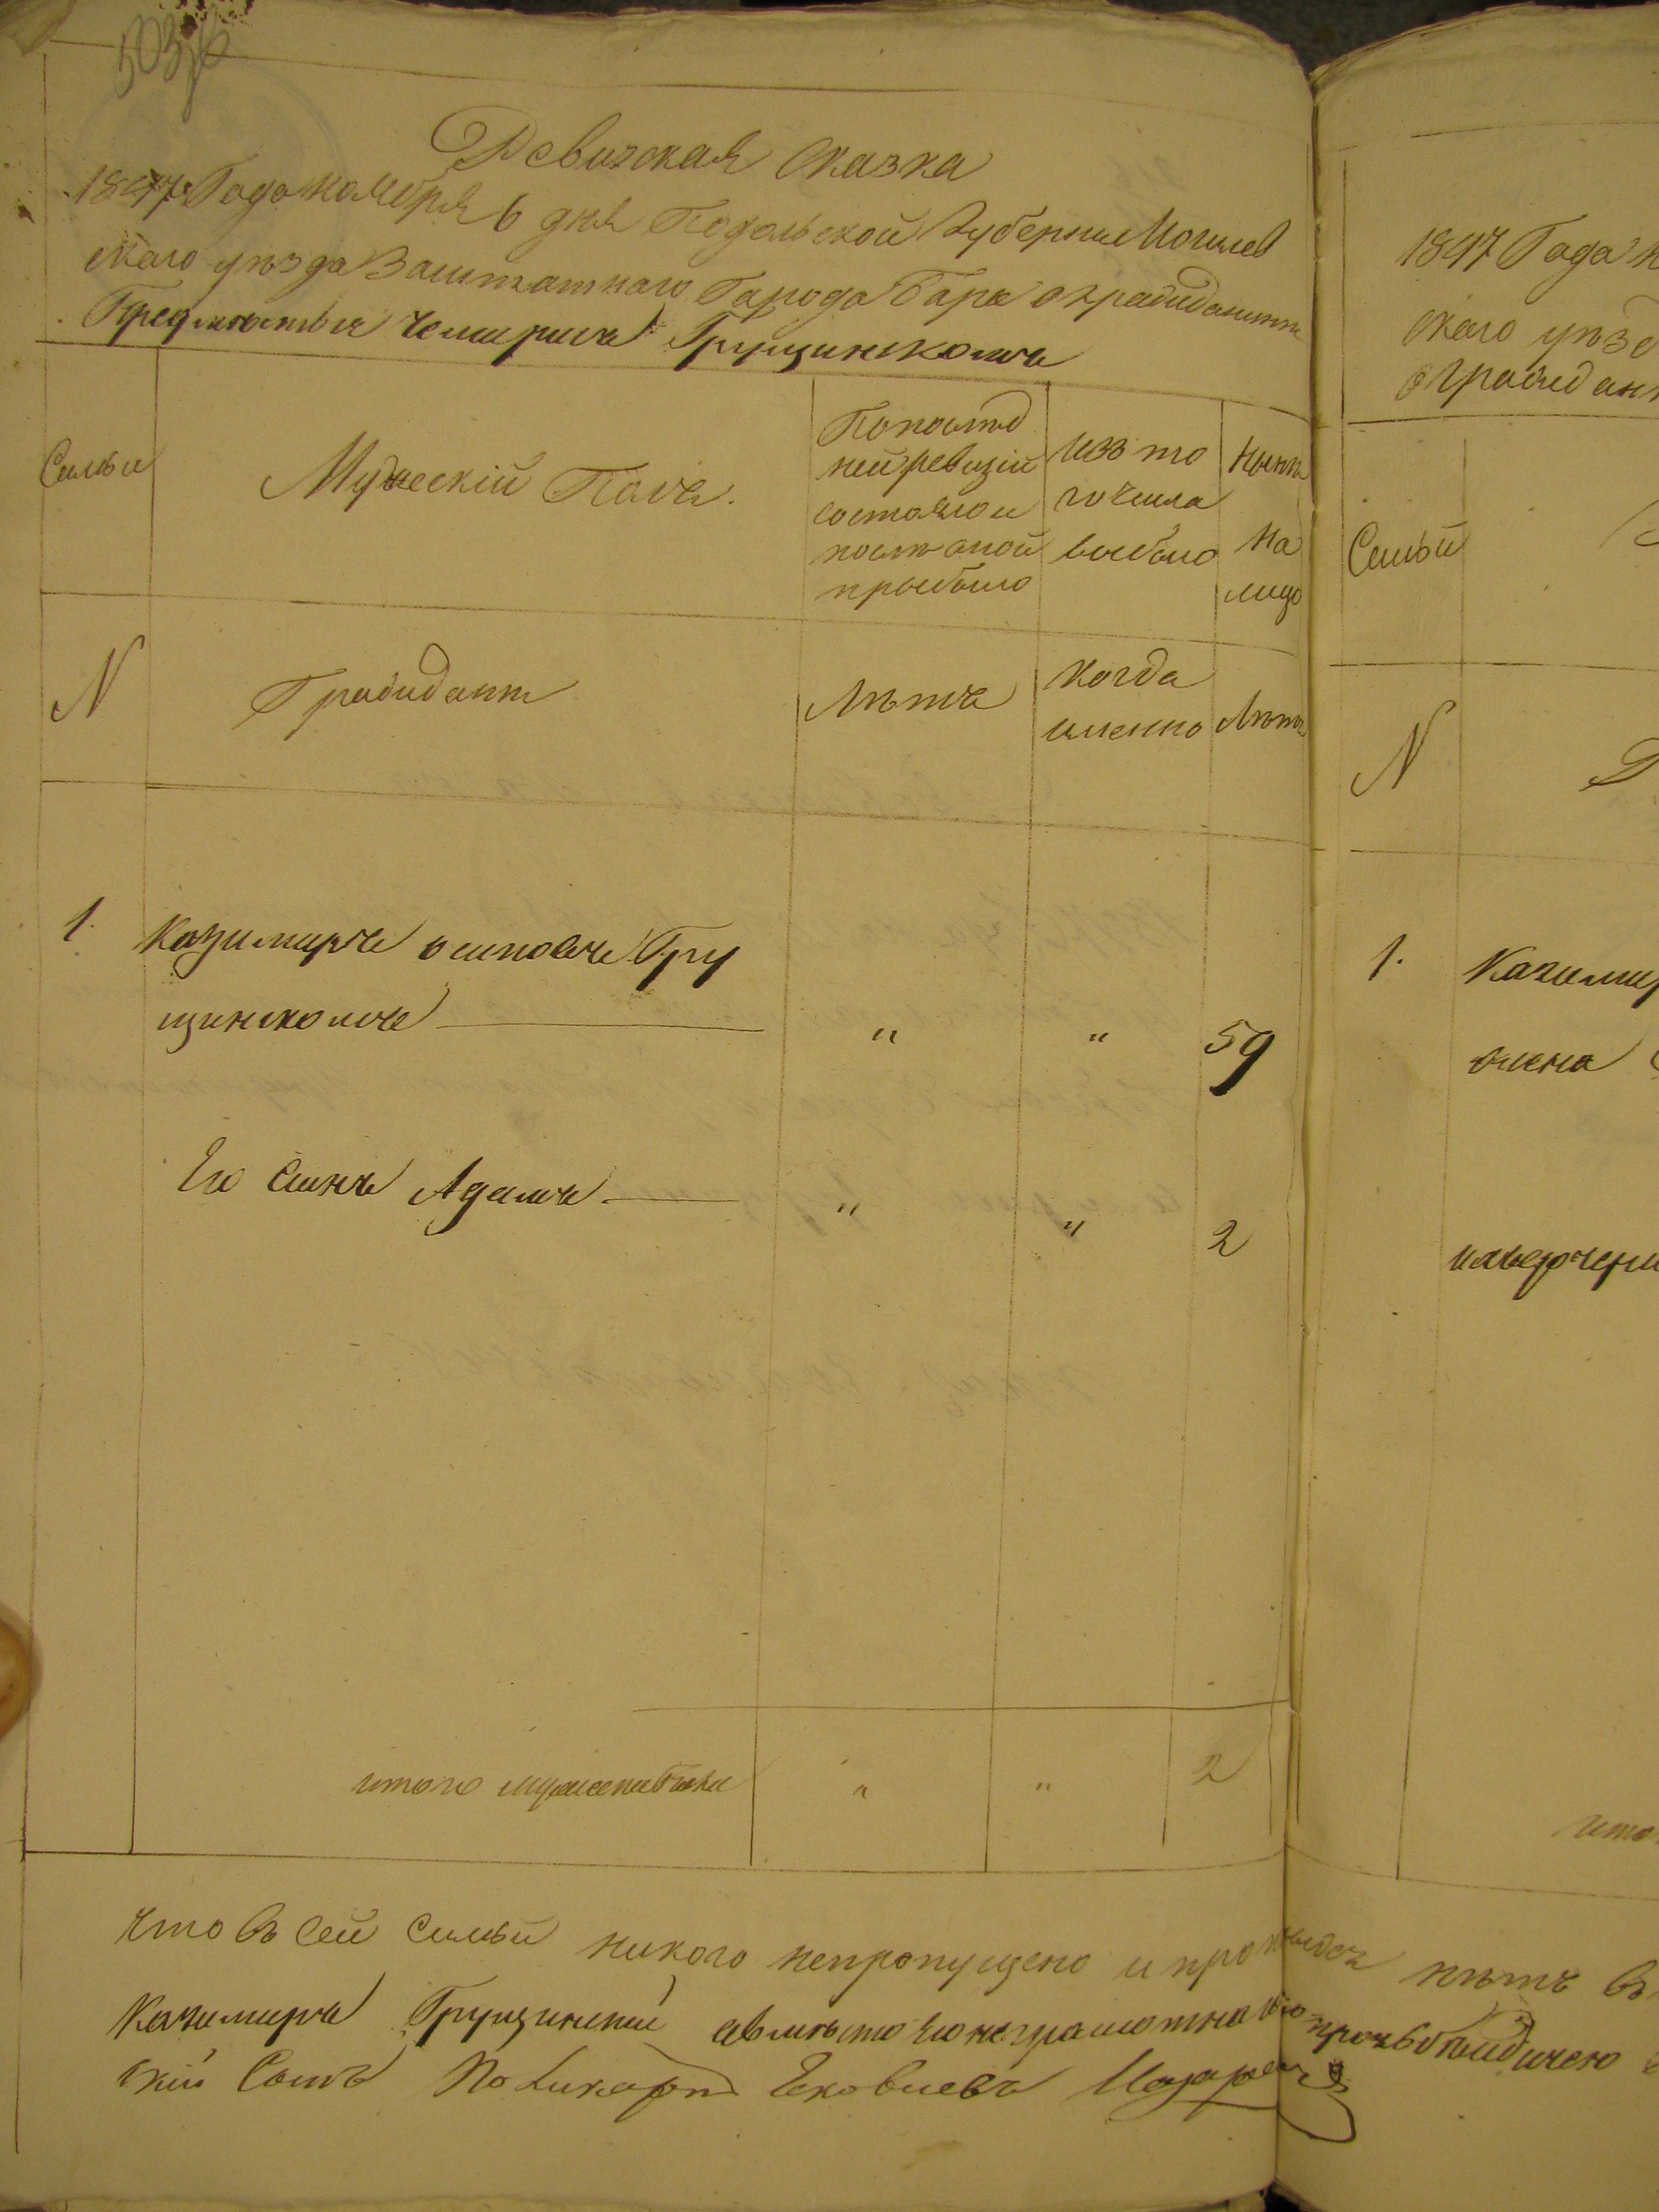 Ревизская сказка
1847 Года ноября 6 дня Подольской Губернии Могилев
скаго уезда Заштатнаго Города Бара о гражданинѣ
Предмѣстья Чемириса Грущинскомъ
Семьи
Мужескій Полъ.
Попослѣд
ней ревизіи
состояло и
послѣ оной
прыбыло
Изъ то
го числа
выбыло
Нынѣ
На
лицо
N
Гражданѣ
Лѣтъ
Когда
именно
Лѣтъ
1. Казимиръ осиповъ Гру
щинскомъ " " 59
Его Сынъ Адамъ " " 2
итого мужеска Пола " " 2
Что въ Сей Семьи никого непропущено и
Казимиръ Грущинскій авмѣсто его неграмотнаго
Сынъ Яковлевъ
1847 Года н
скаго уѣзд
о гражданѣ
Семьи
N
1. Казимир
жена
нѣтъ въ